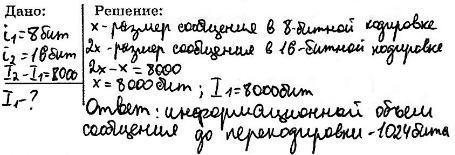 Дано:
i₁=8бит
i₂=16бит
I₂-I₁=8000
I₁-?
Решение:
x-размер сообщения в 8-битной кодировке
2x-размер сообщения в 16-битной кодировке
2x-x=8000
x=8000бит; I₁=8000бит
Ответ: информационной объем
сообщения до перекодировки-1024бита